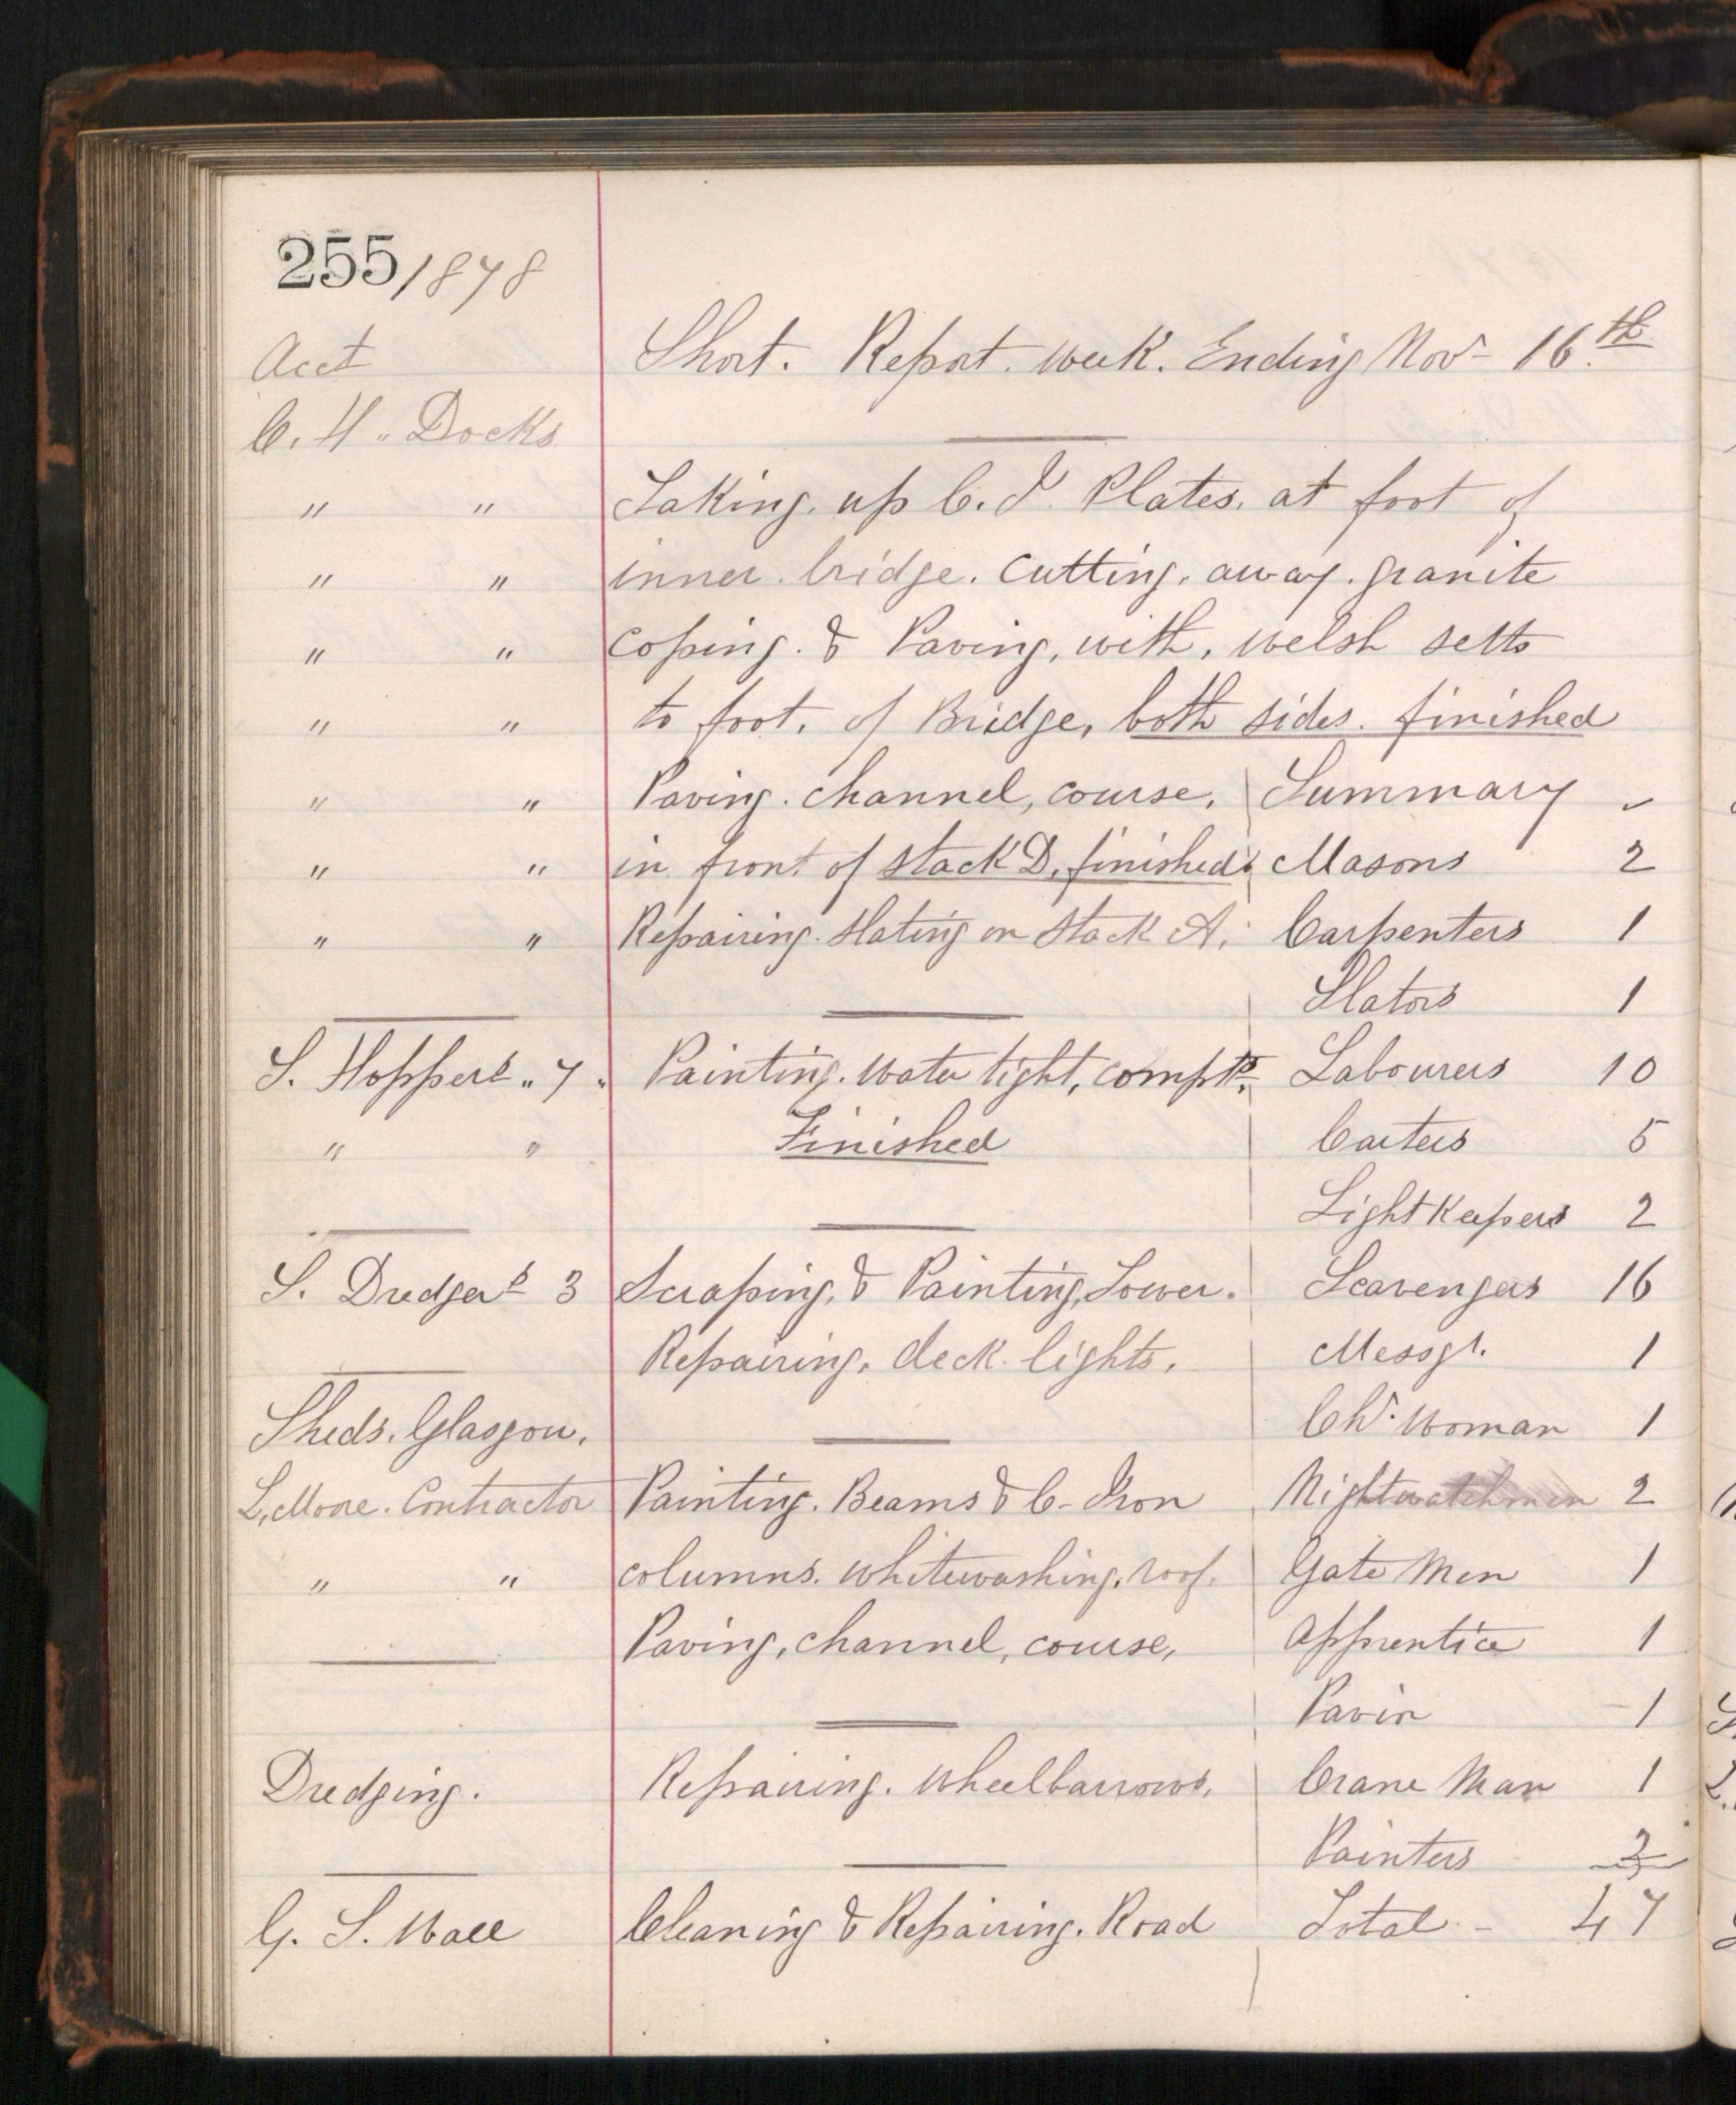 255/1878
Acct Short. Report. week. Ending Nov- 16th
C. H. Docks
" " Taking. up C. I. Plates. at foot of
" " inner. bridge. Cutting. away. granite
" " Coping. & Paving, with, welsh setts
" " to foot. of Bridge, both sides. finished
" " Paving. Channel, course, Summary
" " in front of stack D. finished Masons 2
" " Repairing. Slating on Stack A. Carpenters 1
Slators 1
S. Hopper "7" Painting. water tight, compts. Labourers 10
" " Finished Carters 5
Light Keepers 2
S. Dredger 3 Scraping, & Painting, Lower. Scavengers 16
Repairing. deck. lights. Messgr. 1
Sheds. Glasgow. Chr. Woman 1
L, Moore. Contractor Painting. Beams & C- Iron Nightwatchmen 2
" " columns. Whitewashing. roof. Gate Men 1
Paving, channel, course, Apprentice 1
Pavir 1
Dredging. Repairing. Wheelbarrows. Crane Man 1
Painters 2
G. S. Wall Cleaning & Repairing. Road Total - 47